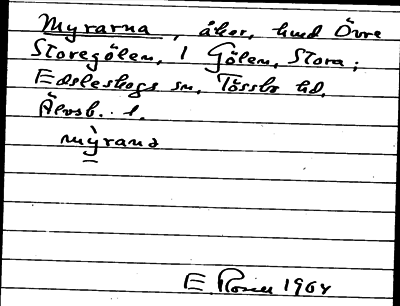 Myrarna, åker, hmd Övre
Storegölen, 1 Gölen, Stora;
Edsleskogs sn, Tössbo hd,
Älvsb. l.
mỳrana
E. Rosen 1964